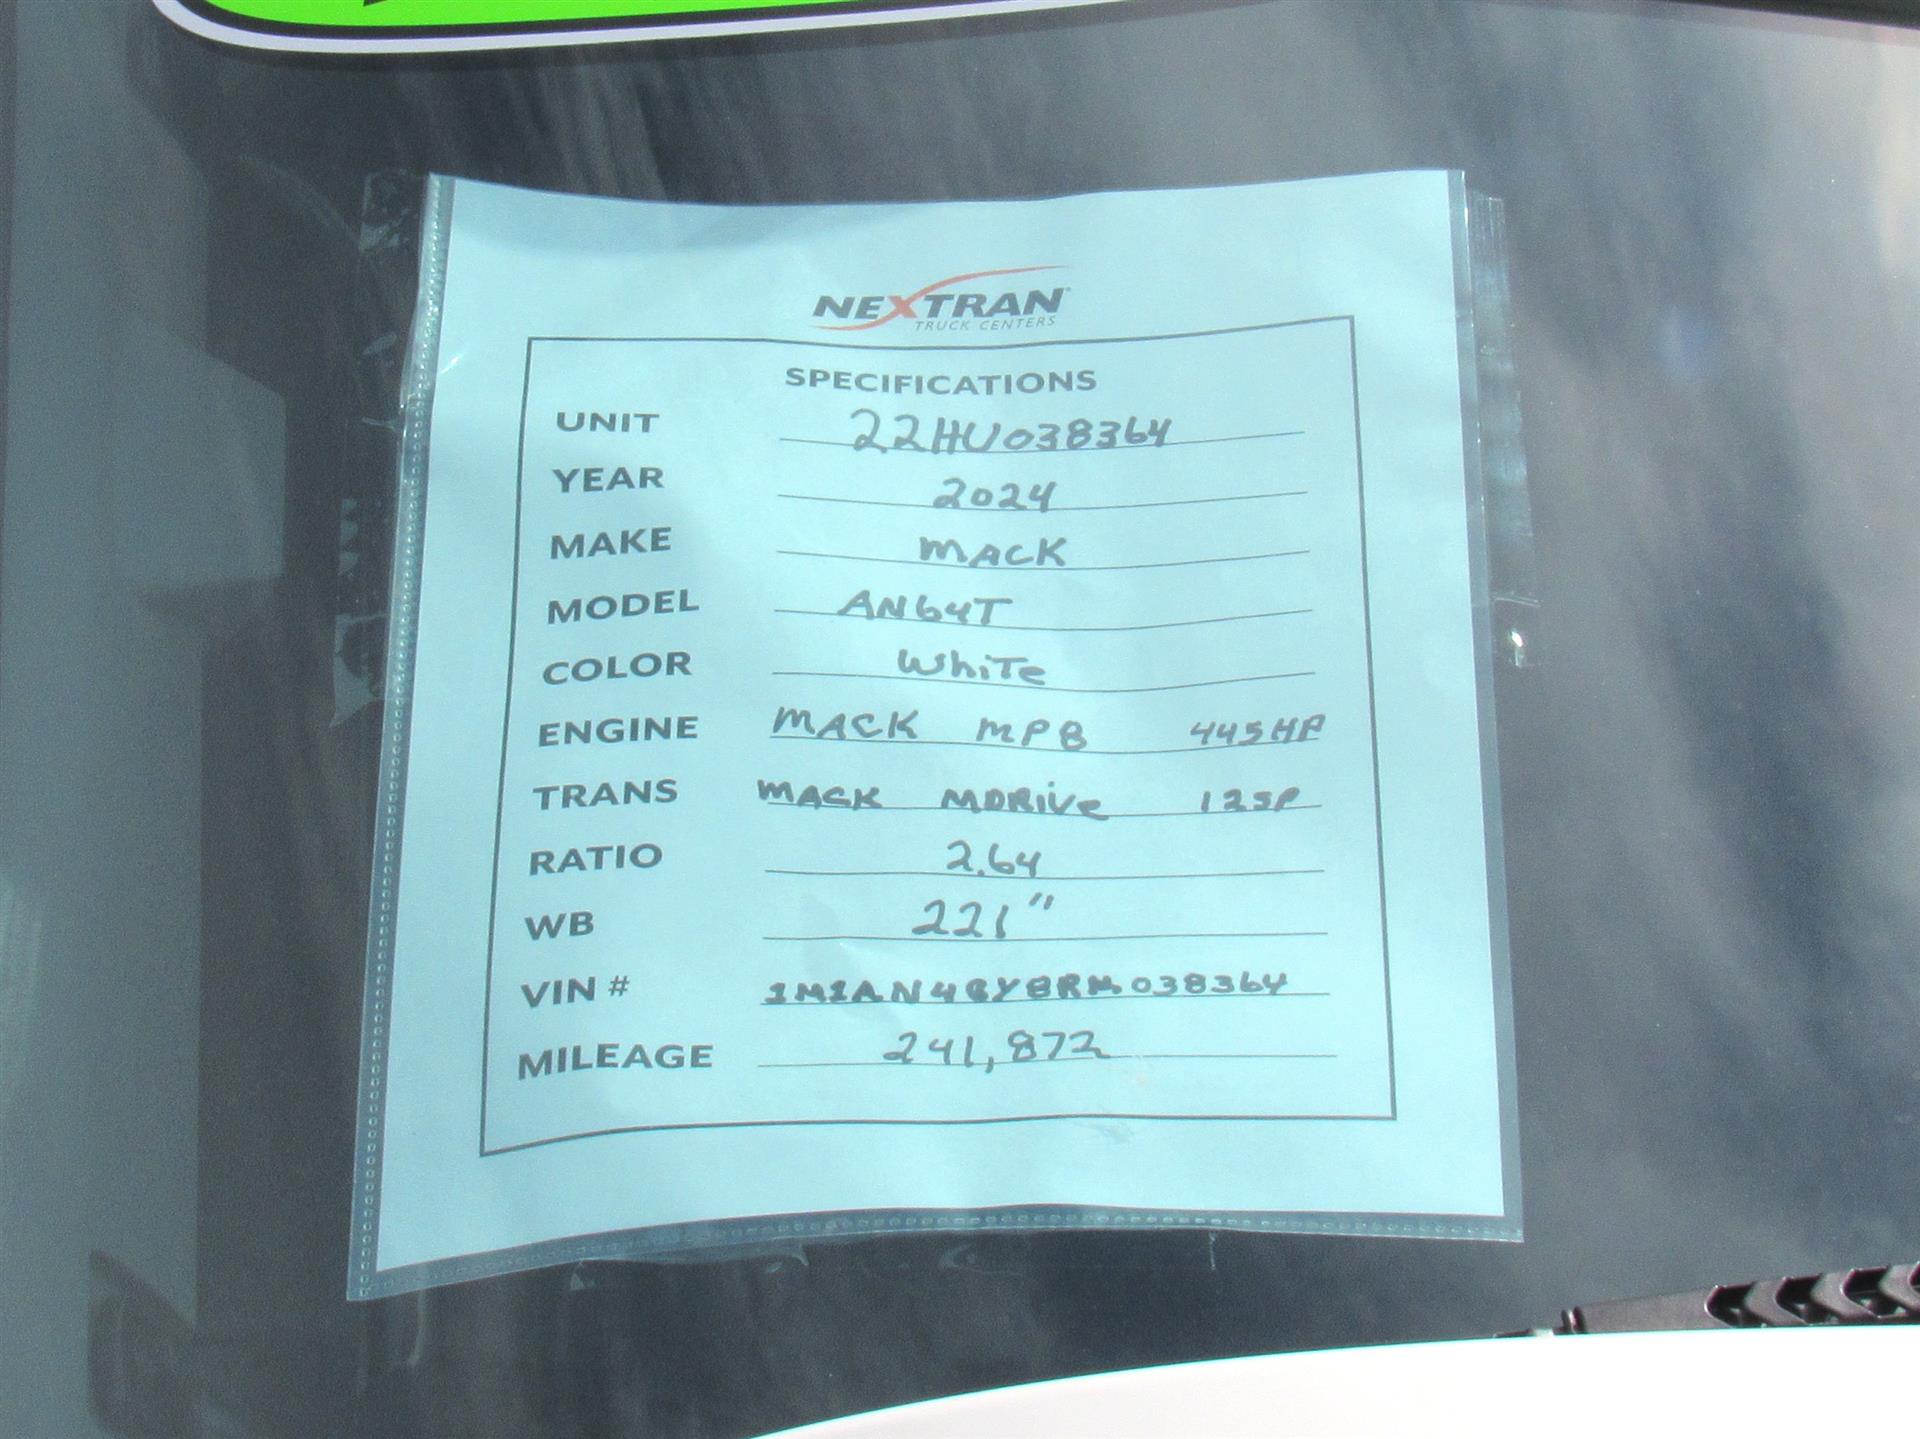 NEXTRAN
TRUCK CENTERS
SPECIFICATIONS
UNIT 22HU038364
YEAR 2024
MAKE MACK
MODEL AN64T
COLOR White
ENGINE MACK MP8 445HP
TRANS MACK MDRIVE 12SP
RATIO 2.64
WB 221"
VIN # 1M1AN4GY8RM038364
MILEAGE 241,872